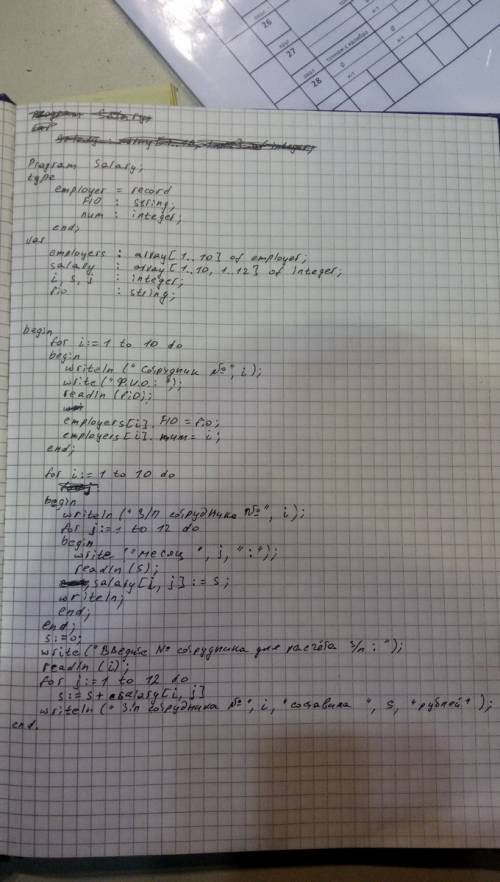 26
27
28
Program Salary;
type
employer = record
FIO : string;
num : integer;
end;
var
employers : array[1..10] of employer;
salary : array[1..10, 1..12] of integer;
i, s, j : integer;
fio : string;
begin
for i:= 1 to 10 do
begin
writeln (" Сотрудник №", i);
write (" Ф.И.О.: ");
readln (fiO);
employers[i]. FIO = fiO;
employers[i]. num= i;
end;
for i:= 1 to 10 do
begin
writeln (" З/П сотрудника №", i);
for j:= 1 to 12 do
begin
write "" месяц ", j, ":");
readln (s);
salary[i, j] := s;
writeln;
end;
end;
s:=0;
write ("Введите № сотрудника для расчёта З/п : ");
readln (i);
for j:= 1 to 12 do
s:= s + salary[i, j]
writeln (" З/п сотрудника №", i, " составила ", s, "рублей");
end.